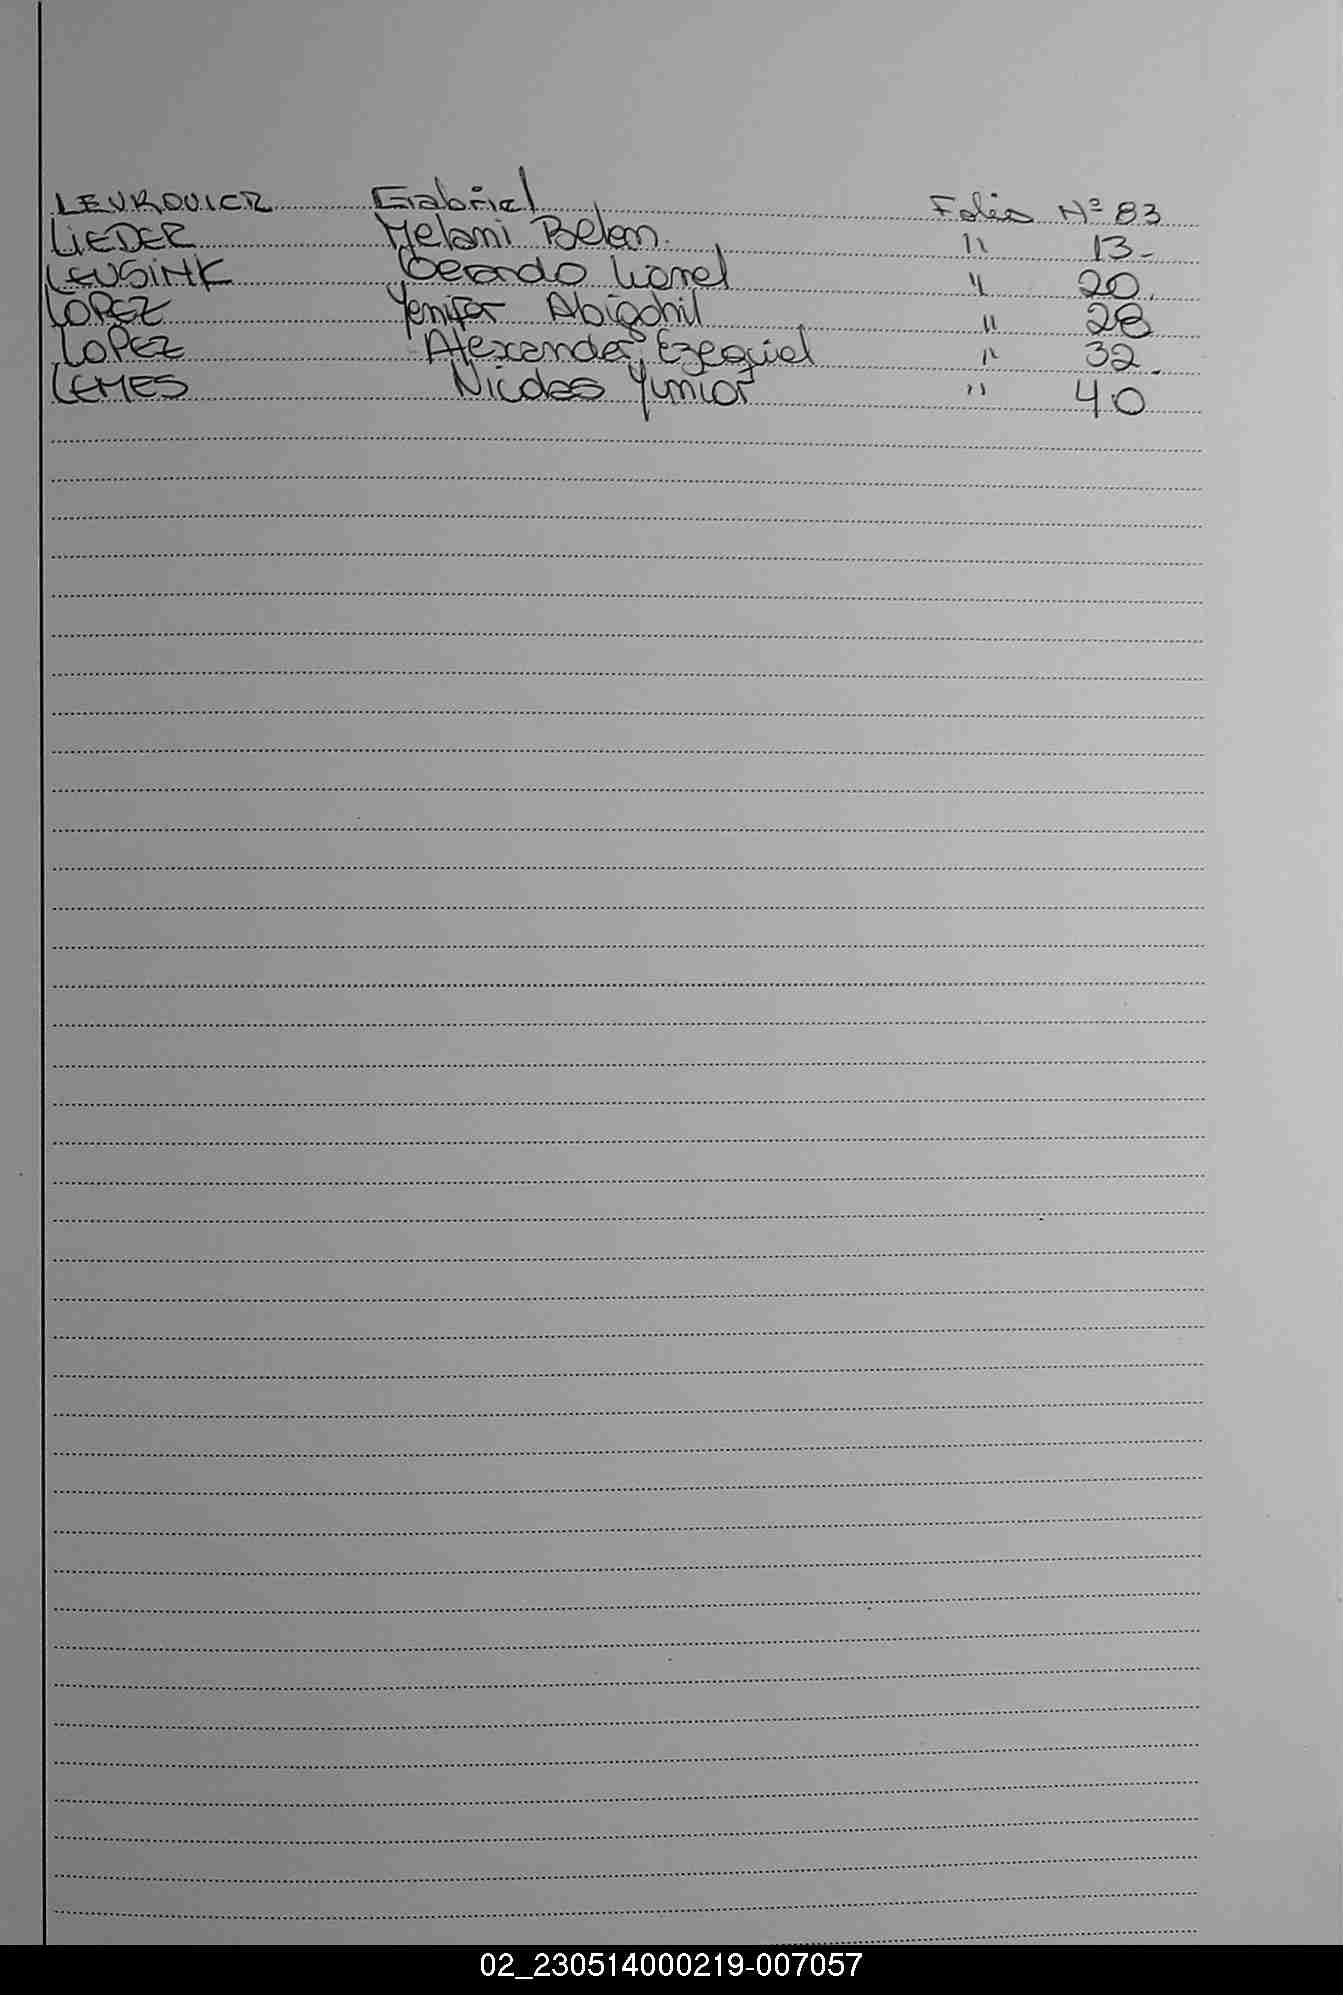 LEVKOVICZ Gabriel Folio Nº 83
LIEDER Melani Belen. " 13-
LEUSINK Gerardo Lionel " 20.
LOPEZ Yenifer Abigahil " 28
LOPEZ Alexander Ezequiel " 32.
LEMES Nicolas Yunior " 40
02_230514000219-007057